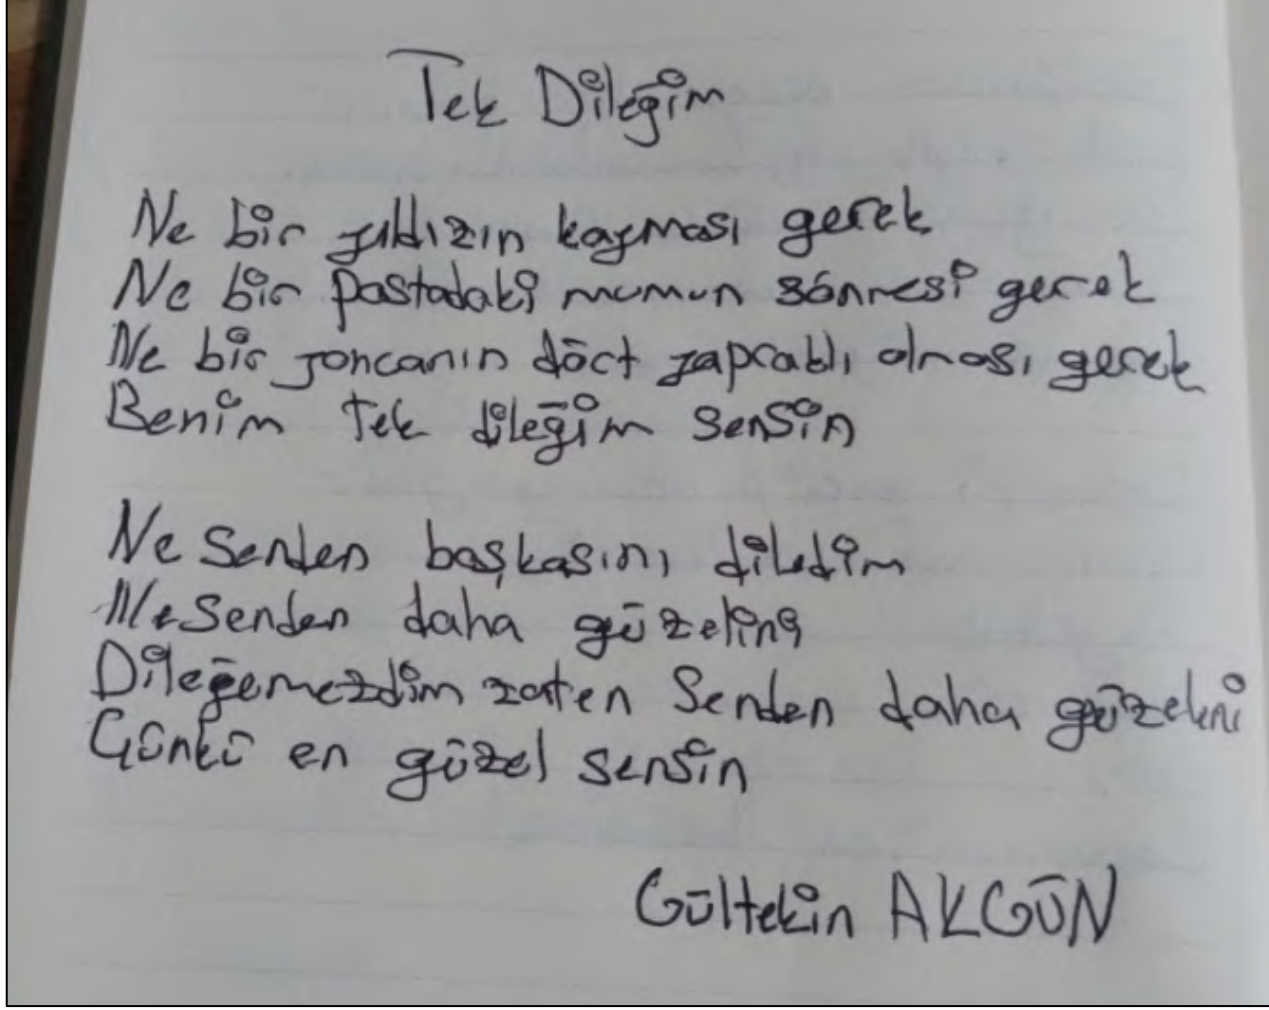 Tek Dileğim
Ne bir yıldızın kayması gerek
Ne bir pastadaki mumun sönmesi gerek
Ne bir yoncanın dört yapraklı olması gerek
Benim tek dileğim sensin
Ne senden başkasını diledim
Ne senden daha güzelini
Dileğemezdim zaten senden daha güzelini
Çünkü en güzel sensin
Gültekin AKGÜN